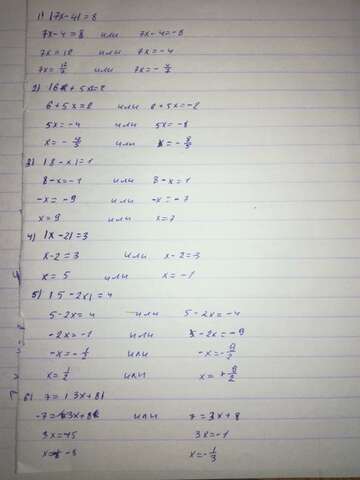 1) |7x-4|=8
7x-4=8 или 7x-4=-8
7x=12 или 7x=-4
7x=12/7 или 7x=-4/7
2) |6+5x|=2
6+5x=2 или 6+5x=-2
5x=-4 или 5x=-8
x=-4/5 или x=-8/5
3) |8-x|=1
8-x=-1 или 8-x=1
-x=-9 или -x=-7
x=9 или x=7
4) |x-2|=3
x-2=3 или x-2=-3
x=5 или x=-1
5) |5-2x|=4
5-2x=4 или 5-2x=-4
-2x=-1 или -2x=-9
-x=-1/2 или -x=-9/2
x=1/2 или x=9/2
6) 7=|3x+8|
-7=3x+8 или 7=3x+8
3x=-15 3x=-1
x=-5 x=-1/3